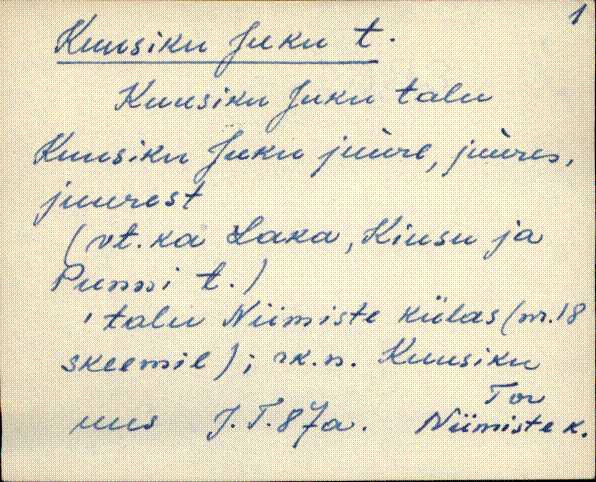 1
Kuusiku Juku t.
Kuusiku Juku talu
Kuusiku Juku juure, juures,
juurest
(vt. ka Laka, Kiusu ja
Punni t.)
'talu Niimiste külas (nr. 18
skeemil); rk. n. Kuusiku
Tor
uus J.T. 87a. Niimiste k.